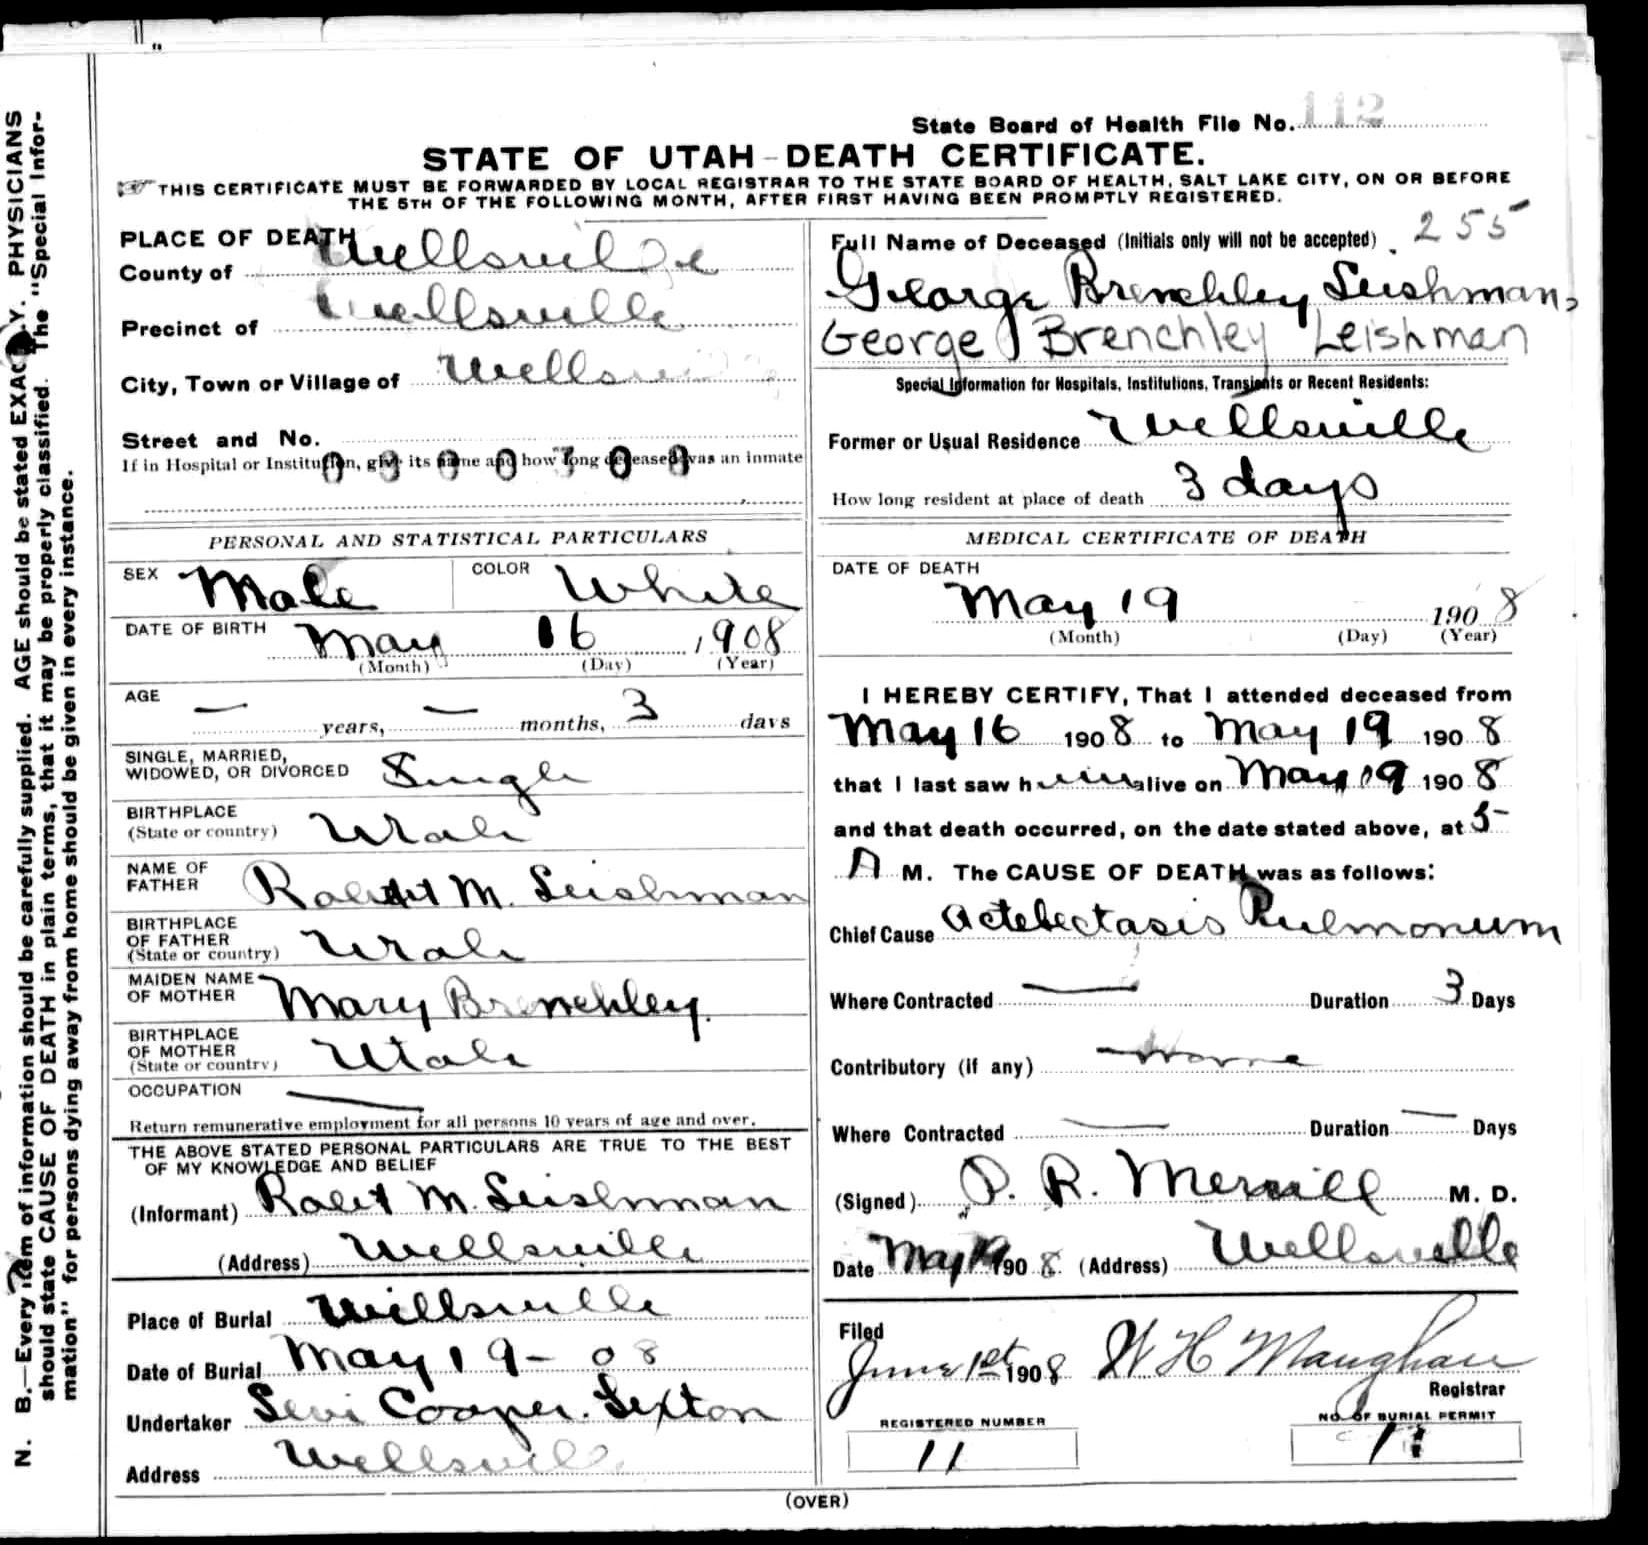 N. B.—Every item of information should be carefully supplied. AGE should be stated EXACTLY. PHYSICIANS
should state CAUSE OF DEATH in plain terms, that it may be properly classified. The "Special Infor-
mation" for persons dying away from home should be given in every instance.
State Board of Health File No. 112
STATE OF UTAH-DEATH CERTIFICATE.
THIS CERTIFICATE MUST BE FORWARDED BY LOCAL REGISTRAR TO THE STATE BOARD OF HEALTH, SALT LAKE CITY, ON OR BEFORE
THE 5TH OF THE FOLLOWING MONTH, AFTER FIRST HAVING BEEN PROMPTLY REGISTERED.
PLACE OF DEATH
County of Wellsville
Precinct of Wellsville
City, Town or Village of Wellsville
Street and No.
If in Hospital or Institution, give its name and how long deceased was an inmate
PERSONAL AND STATISTICAL PARTICULARS
SEX Male COLOR White
DATE OF BIRTH May 16 1908
(Month) (Day) (Year)
AGE
— years, — months, 3 days
SINGLE, MARRIED,
WIDOWED, OR DIVORCED Single
BIRTHPLACE
(State or country) Utah
NAME OF
FATHER Robert M. Leishman
BIRTHPLACE
OF FATHER
(State or country) Utah
MAIDEN NAME
OF MOTHER Mary Brenchley.
BIRTHPLACE
OF MOTHER
(State or country) Utah
OCCUPATION —
Return remunerative employment for all persons 10 years of age and over.
THE ABOVE STATED PERSONAL PARTICULARS ARE TRUE TO THE BEST
OF MY KNOWLEDGE AND BELIEF
(Informant) Robt M. Leishman
(Address) Wellsville
Place of Burial Willsville
Date of Burial May 19 - 08
Undertaker Levi Cooper. Sexton
Address Wellsville
Full Name of Deceased (Initials only will not be accepted) 255
George Brenchley Leishman,
George Brenchley Leishman
Special Information for Hospitals, Institutions, Transients or Recent Residents:
Former or Usual Residence Wellsville
How long resident at place of death 3 days
MEDICAL CERTIFICATE OF DEATH
DATE OF DEATH
May 19 1908
(Month) (Day) (Year)
I HEREBY CERTIFY, That I attended deceased from
May 16 1908 to May 19 1908
that I last saw him alive on May 19 1908
and that death occurred, on the date stated above, at 5
A M. The CAUSE OF DEATH was as follows:
Chief Cause Actelectasis Pulmonum
Where Contracted — Duration 3 Days
Contributory (if any) none
Where Contracted — Duration — Days
(Signed) P. R. Merrill M. D.
Date May 19 1908 (Address) Wellsville
Filed
June 1st 1908 W H Maughan
Registrar
REGISTERED NUMBER
11
NO. OF BURIAL PERMIT
11
(OVER)